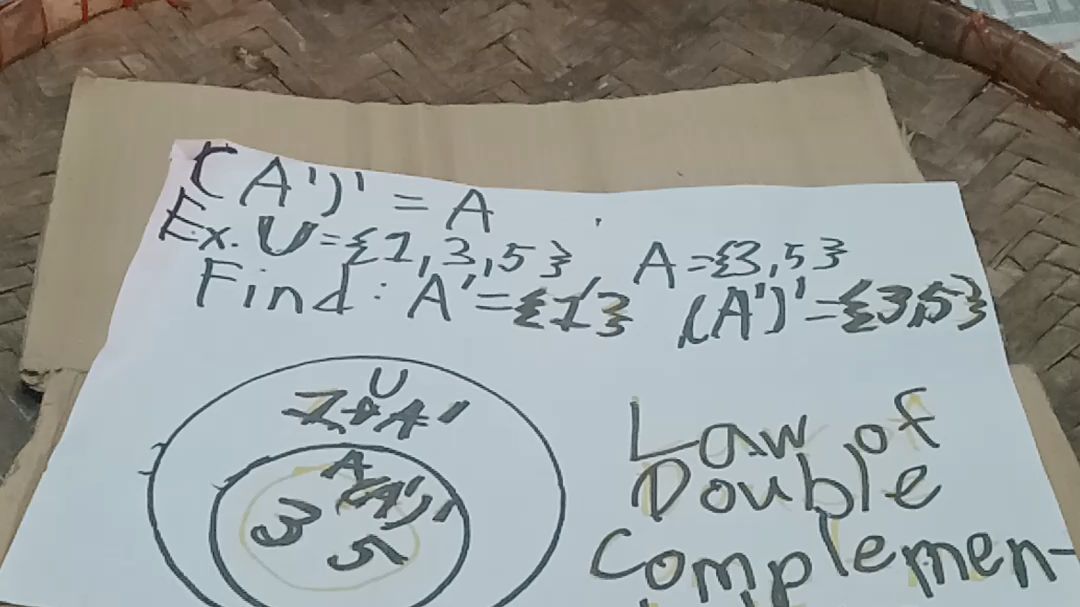 (A')' = A
Ex. U={1,3,5} A={3,5}
Find: A'={1} (A')'={3,5}
U
1→A'
A
(A')'
3
5
Law of
Double
Complemen-